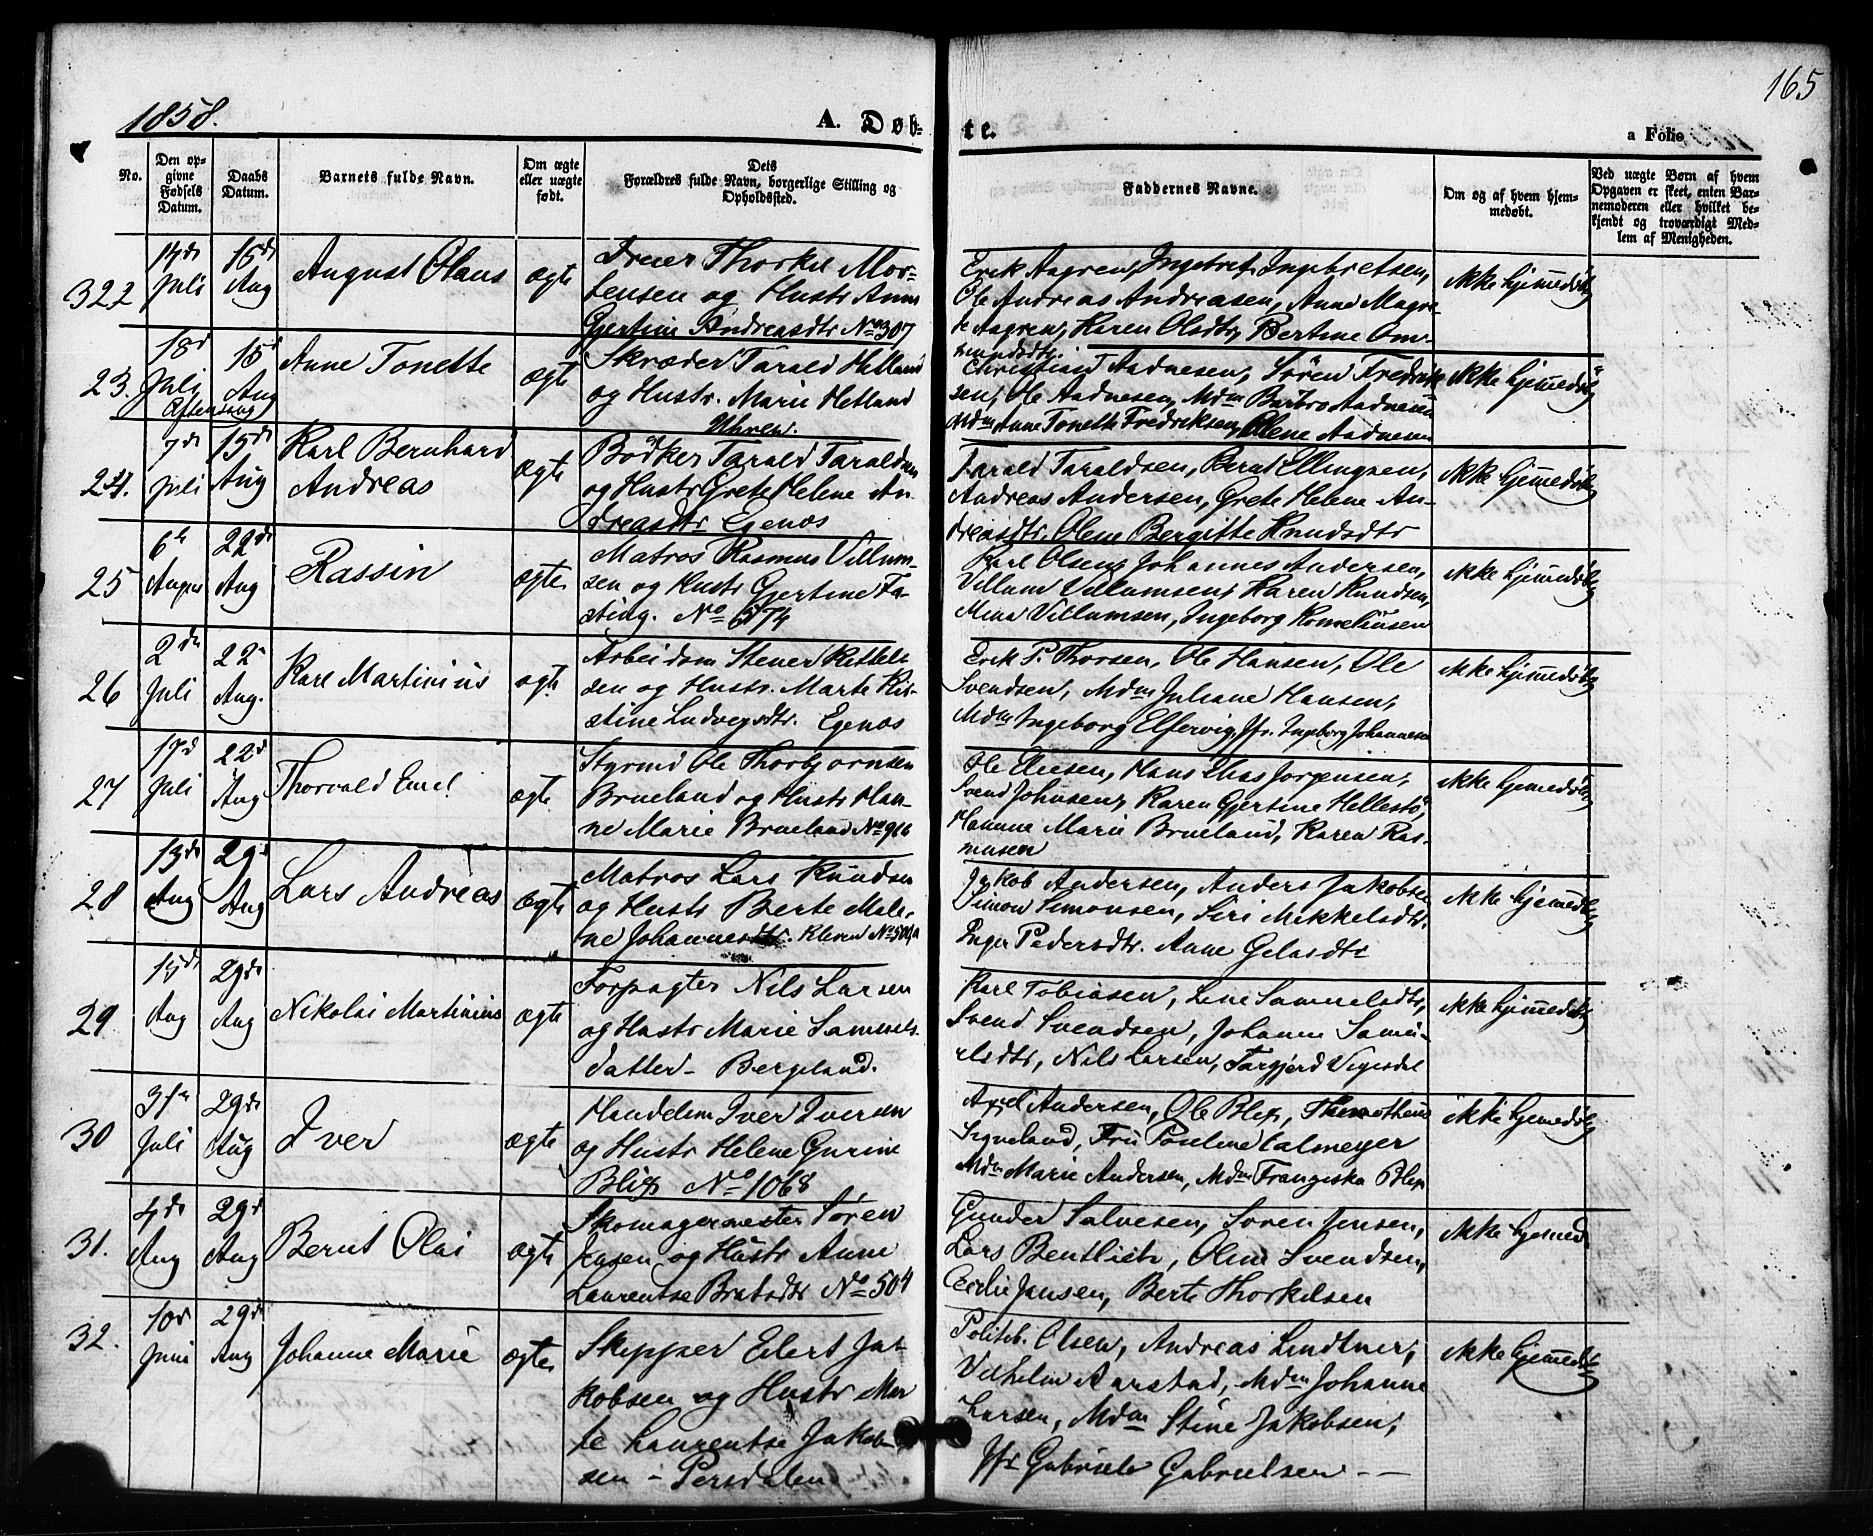 165
1858.
A. Døb-
te.
a Folio
No.
Den op-
givne
Fødsels
Datum.
Daabs
Datum.
Barnets fulde Navn.
Om ægte
eller uægte
født.
Dets
Forældres fulde Navn, borgerlige Stilling og
Opholdssted.
Faddernes Navne.
Om og af hvem hjem-
medøbt.
Ved uægte Børn af hvem
Opgaven er skeet, enten Bar-
nemoderen eller hvilket be-
kjendt og troværdigt Med-
lem af Menigheden.
322
Juli
15de
Aug
August Olaus
ægte
Dreier Thorkel Mor-
tensen og Hustr Anne
Gjertine Andreasdtr No 307
Erik Aagren, Ingebret Ingebretsen,
Ole Andreas Andreasen, Anne Magre-
te Aagren, Karen Olsdtr, Bertine Om-
mundsdtr.
ikke hjemmedøbt
23.
18d
Juli
15d
Aug
Aftensang
Anne Tonette
ægte
Skræder Tarald Hetland
og Hustr. Marie Hetland
Christian Aadnesen, Sören Fredrik-
sen, Ole Aadnesen, Mdm Barbro Aadnesen
Mdm Anne Tonette Fredriksen, Olene Aadnesen
ikke hjemmedøbt
24.
7de
Juli
15de
Aug
Karl Bernhard
Andreas
ægte
Bödker Tarald Taraldsen
og Hustr Grete Helene An-
dreasdtr Egenæs
Tarald Taraldsen, Bernt Ellingsen,
Andreas Andersen, Grete Helene An-
dreasdtr. Olene Bergitte Knudsdtr
ikke hjemmedøbt
25
6te
August
22de
Aug
Rassin
ægte
Matros Rasmus Villum-
sen og Hustr Gjertine Fa-
sting. No 674
Karl Olsen, Johannes Andersen,
Villum Villumsen, Karen Knudsen,
Mina Villumsen, Ingeborg Kornelius­en
ikke hjemmedøbt
26
2den
Juli
22
Aug.
Karl Martinius
ægte
Arbeidsm Stener Kittels-
sen og Hustr. Marte Kri-
stine Ludvigsdtr. Egenæs
Erik P. Thorsen, Ole Hansen, Ole
Svendsen, Mdm Juliane Hansen,
Mdm Ingeborg Elfervig, Jfr. Ingeborg Johannesen
ikke hjemmedøbt
27
17d
Juli
22d
Aug
Thorvald Emel
ægte
Styrmd Ole Thorbjörnsen
Brueland og Hustr Han-
ne Marie Brueland No 966
Ole Eliesen, Hans Elias Jorgensen,
Svend Johnsen, Karen Gjertine Hellestö,
Hanne Marie Brueland, Karen Ras-
musen
ikke hjemmedøbt
28
13de
Aug
29d
Aug
Lars Andreas
ægte
Matros Lars Knudsen
og Hustr Berte Male-
ne Johannesdtr. Kleven No 504a
Jakob Andersen, Anders Jakobsen
Simon Simonsen, Siri Mikkelsdtr.
Inger Pedersdtr. Anne
ikke hjemmedøbt
29
Aug
29de
Aug
Nikolai Martinius
ægte
Forpagter Nils Larsen
og Hustr Marie Samuels-
datter - Bergeland.
Karl Tobiasen, Lene Samuelsdtr,
Svend Svendsen, Johanne Samu-
elsdtr, Nils Larsen, Targjerd Vigesdal
ikke hjemmedøbt
30
31te
Juli
29de
Aug
Iver
ægte
Handelsm Iver Iversen
og Hustr Helene Gurine
Blix No 1068
Axel Andersen, Ole Blix, Thimotheus
Sigveland, Fru Pauline Calmeyer
Mdm Marie Andersen, Mdm Frangiska Blix
ikke hjemmedøbt
31.
4de
Aug
29d
Aug
Bernt Olai
ægte
Skomagermester Sören
Jensen og Hustr Anne
Laurentse Bratsdtr No 504
Gunder Salvesen, Sören Jensen,
Lars Bentlich, Oline Svendsen,
Cecilie Jansen, Berte Thorkelsen
ikke hjemmed.
32.
10d
Juni
29d
Aug
Johanne Marie
ægte
Skipper Eilert Ja-
kobsen og Hustr Mar-
te Laurentse Jakob-
sen - Persdalen
Politib. Olsen, Andreas Lindtner,
Vilhelm Aarstad, Mdm Johanne
Larsen, Mdm Stine Jakobsen,
Jfr Gabriele Gabrielsen - -
ikke hjemmedøbt